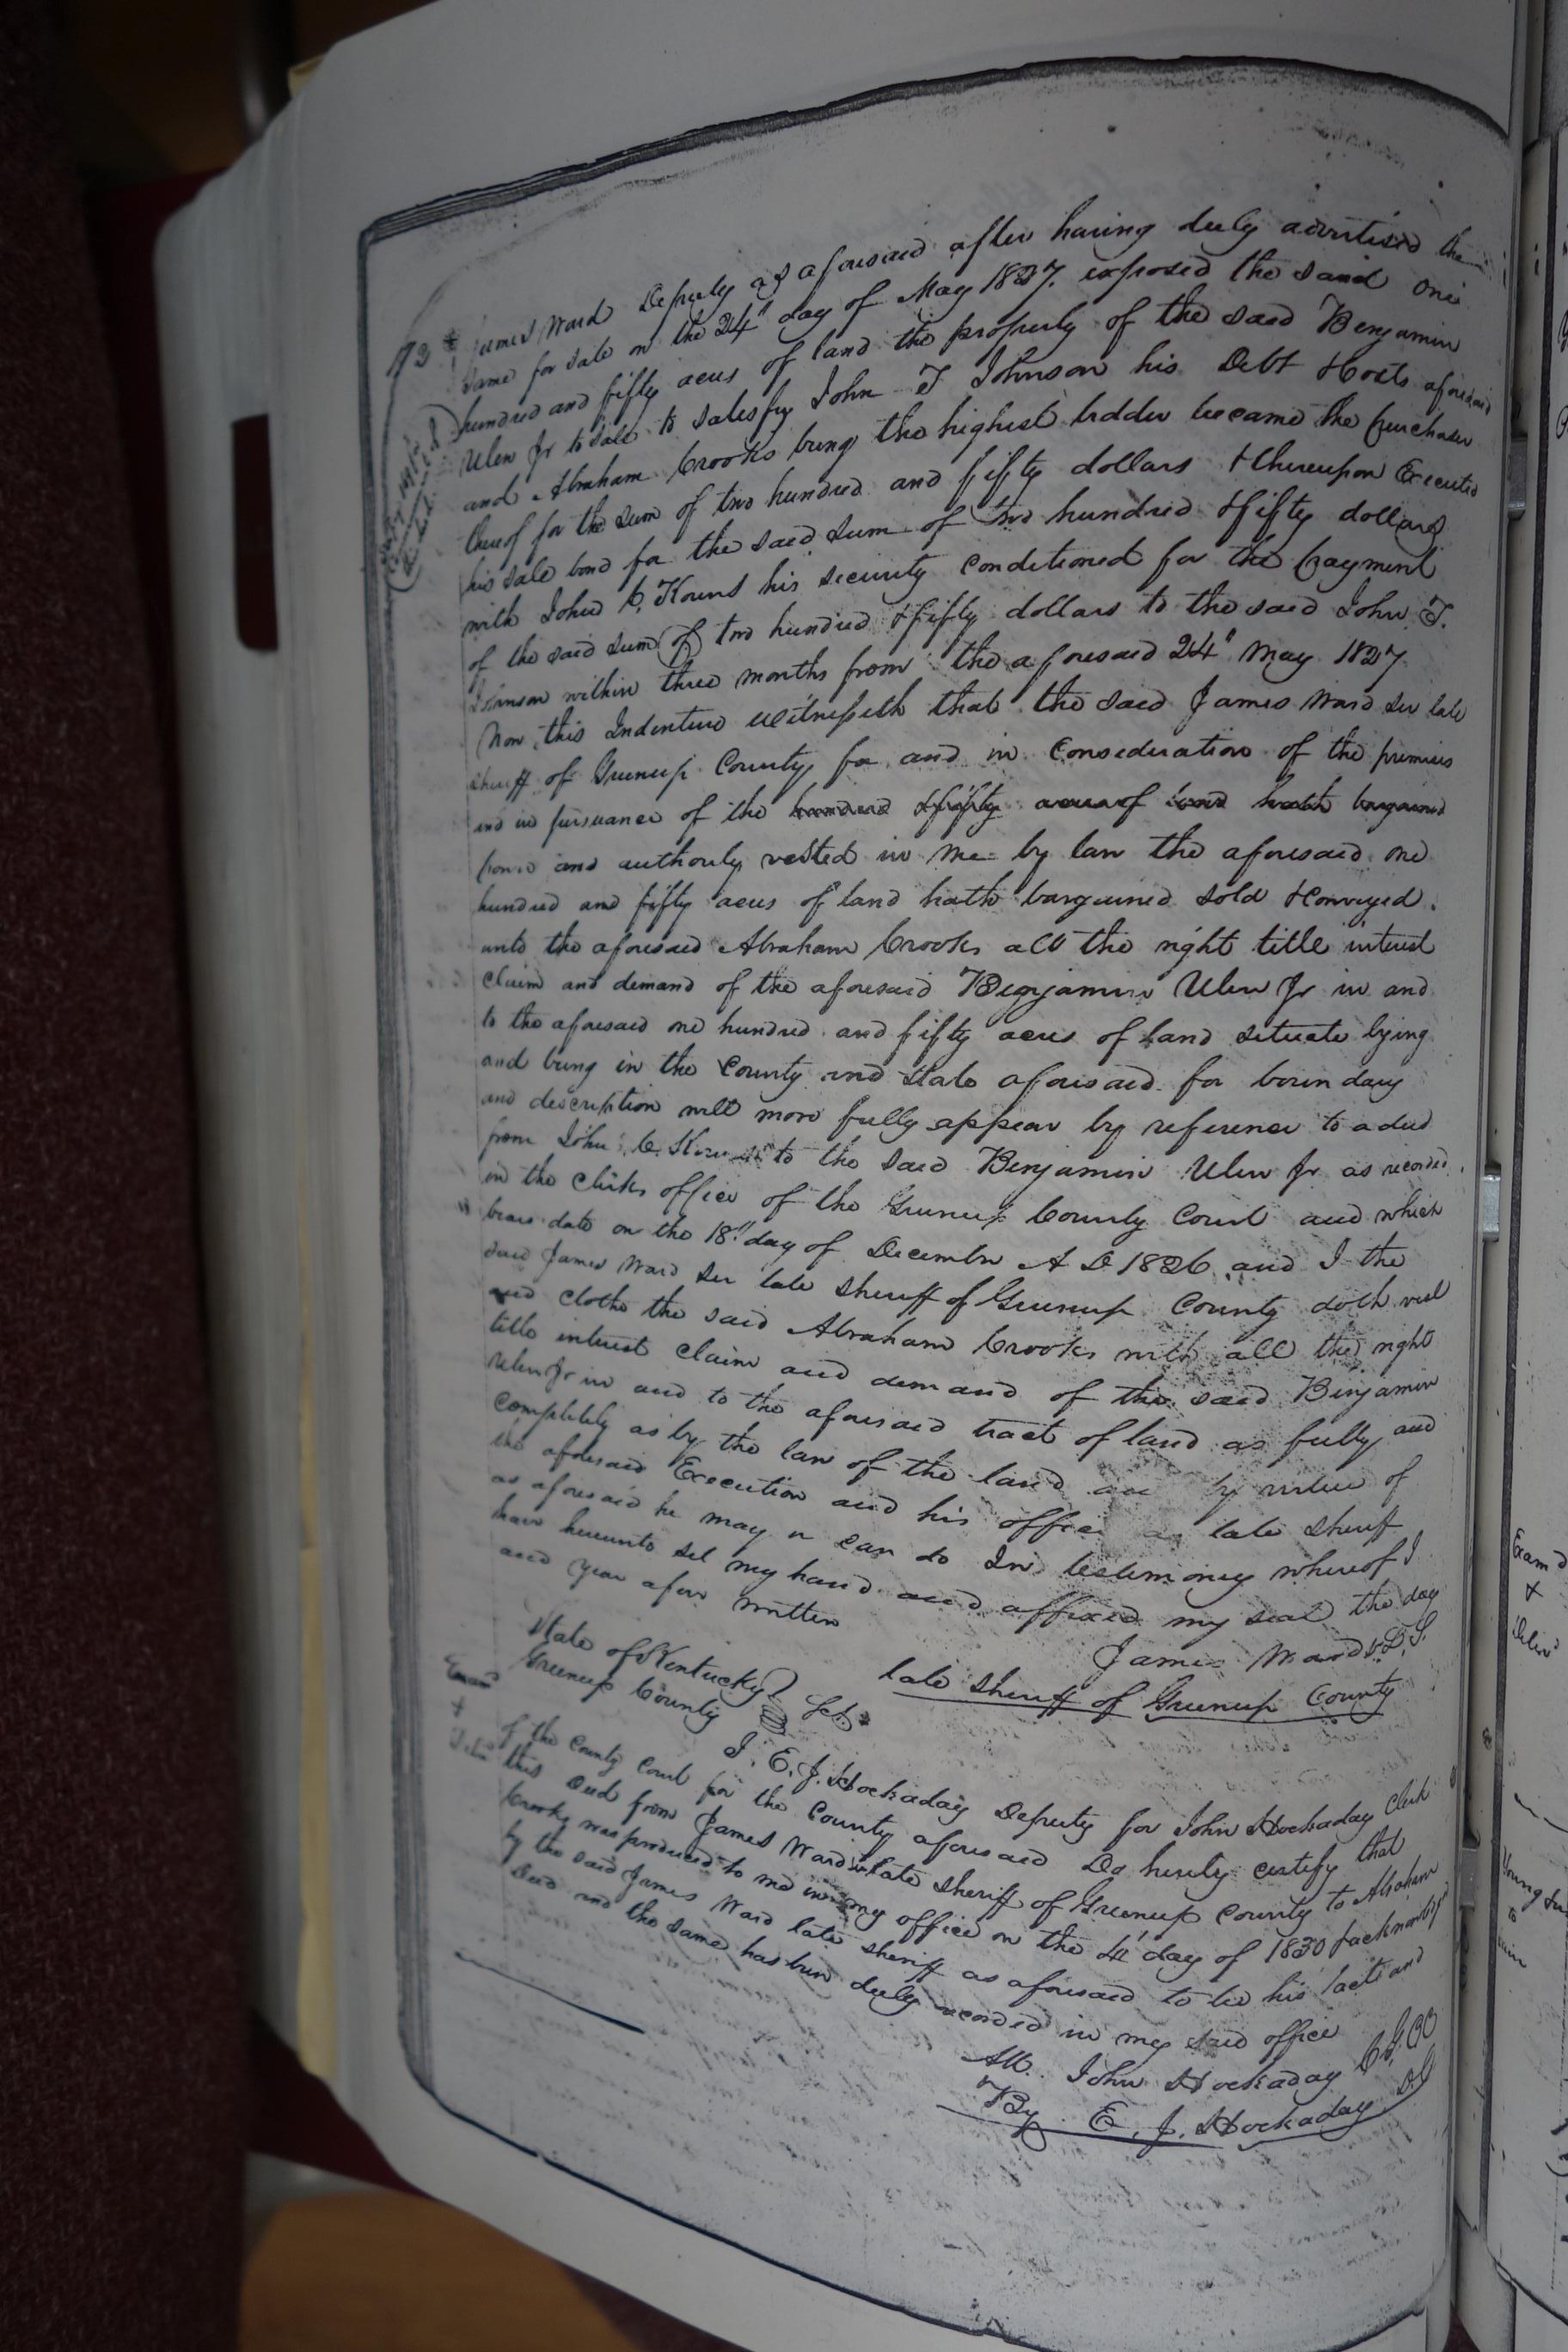 James Ward Deputy as aforesaid after having duly advertised the
same for sale on the 24" day of May 1827. exposed the said one
hundred and fifty acres of land the property of the said Benjamin
Ulen Jr to sale to satisfy John T Johnson his Debt & Costs aforesaid
and Abraham Crooks being the highest bidder became the purchaser
thereof for the sum of two hundred and fifty dollars & thereupon Executed
his sale bond for the said sum of two hundred & fifty dollars
with John C. Kouns his security conditioned for the payment
of the said sum of two hundred & fifty dollars to the said John T.
Johnson within three months from the aforesaid 24" May 1827
Now this Indenture witnesseth that the said James Ward Ser late
sheriff of Greenup County for and in Consideration of the premises
and in pursuance of the hundred & fifty acres of land hath bargained
power and authority vested in me by law the aforesaid one
hundred and fifty acres of land hath bargained sold & conveyed
unto the aforesaid Abraham Crooks all the right title interest
Claim and demand of the aforesaid Benjamin Ulen Jr in and
to the aforesaid one hundred and fifty acres of land situate lying
and being in the County and State aforesaid for boundary
and description will more fully appear by reference to a deed
from John C. Kouns to the said Benjamin Ulen Jr as recorded
in the clerks office of the Greenup County Court and which
bears date on the 18" day of December A D 1826 and I the
said James Ward Ser late sheriff of Greenup County doth vest
and clothe the said Abraham Crooks with all the right
title interest claim and demand of the said Benjamin
Ulen Jr in and to the aforesaid tract of land as fully and
completely as by the law of the land by virtue of
the aforesaid Execution and his office as late sheriff
as aforesaid he may or can do In testimony whereof I
have hereunto set my hand and affixed my seal the day
and year afore written
James Ward
late sheriff of Greenup County
State of Kentucky
Greenup County Sct
I. E. J. Hockaday Deputy for John Hockaday Clerk
of the County Court for the County aforesaid Do hereby certify that
this Deed from James Ward late sheriff of Greenup County to Abraham
Crooks was produced to me in my office on the 4" day of 1830 & acknowledged
by the said James Ward late sheriff as aforesaid to be his act and
Deed and the same has been duly recorded in my said office
Att. John Hockaday C.G.CC
By E. J. Hockaday D.C